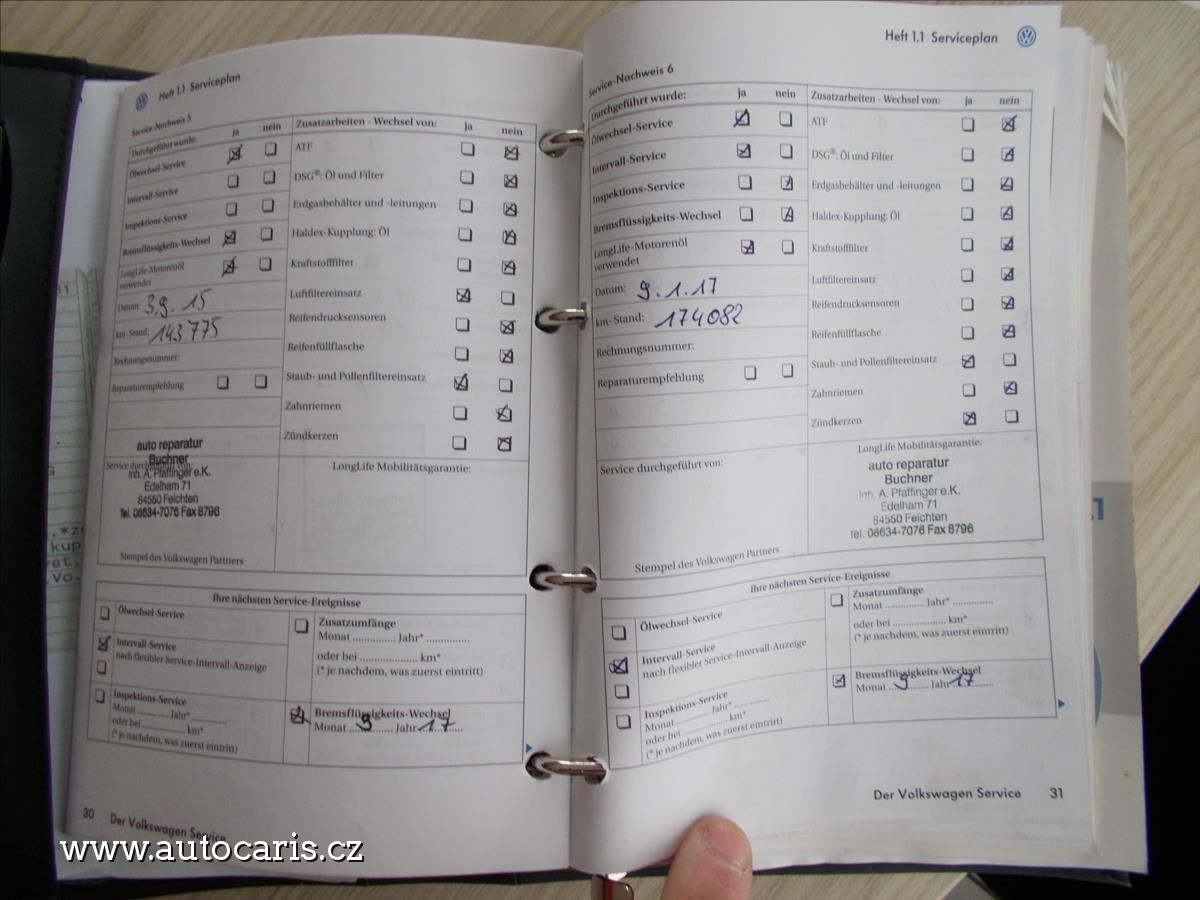 Heft 1.1 Serviceplan
Service-Nachweis 5
Durchgeführt wurde: ja nein
Ölwechsel-Service
Intervall-Service
Inspektions-Service
Bremsflüssigkeits-Wechsel
LongLife-Motorenöl
verwendet
Datum: 3.9.15
km-Stand: 143775
Rechnungsnummer:
Reparaturempfehlung
Zusatzarbeiten - Wechsel von: ja nein
ATF
DSG®: Öl und Filter
Erdgasbehälter und -leitungen
Haldex-Kupplung: Öl
Kraftstofffilter
Luftfiltereinsatz
Reifendrucksensoren
Reifenfüllflasche
Staub- und Pollenfiltereinsatz
Zahnriemen
Zündkerzen
auto reparatur
Buchner
Service durchgeführt von:
Inh. A. Pfaffinger e.K.
Edelham 71
84550 Feichten
Tel. 08634-7076 Fax 8796
Stempel des Volkswagen Partners
LongLife Mobilitätsgarantie:
Ihre nächsten Service-Ereignisse
Ölwechsel-Service
Intervall-Service
nach flexibler Service-Intervall-Anzeige
Inspektions-Service
Monat ............ Jahr* ............
oder bei .................... km*
(* je nachdem, was zuerst eintritt)
Zusatzumfänge
Monat ............ Jahr* ............
oder bei .................... km*
(* je nachdem, was zuerst eintritt)
Bremsflüssigkeits-Wechsel
Monat 9 Jahr 17
30 Der Volkswagen Service
Heft 1.1 Serviceplan
Service-Nachweis 6
Durchgeführt wurde: ja nein
Ölwechsel-Service
Intervall-Service
Inspektions-Service
Bremsflüssigkeits-Wechsel
LongLife-Motorenöl
verwendet
Datum: 9.1.17
km-Stand: 174082
Rechnungsnummer:
Reparaturempfehlung
Service durchgeführt von:
Stempel des Volkswagen Partners
Zusatzarbeiten - Wechsel von: ja nein
ATF
DSG®: Öl und Filter
Erdgasbehälter und -leitungen
Haldex-Kupplung: Öl
Kraftstofffilter
Luftfiltereinsatz
Reifendrucksensoren
Reifenfüllflasche
Staub- und Pollenfiltereinsatz
Zahnriemen
Zündkerzen
LongLife Mobilitätsgarantie:
auto reparatur
Buchner
Inh. A. Pfaffinger e.K.
Edelham 71
84550 Feichten
Tel. 08634-7076 Fax 8796
Ihre nächsten Service-Ereignisse
Ölwechsel-Service
Intervall-Service
nach flexibler Service-Intervall-Anzeige
Inspektions-Service
Monat ............ Jahr* ............
oder bei .................... km*
(* je nachdem, was zuerst eintritt)
Zusatzumfänge
Monat ............ Jahr* ............
oder bei .................... km*
(* je nachdem, was zuerst eintritt)
Bremsflüssigkeits-Wechsel
Monat 9 Jahr 17
Der Volkswagen Service 31
www.autocaris.cz